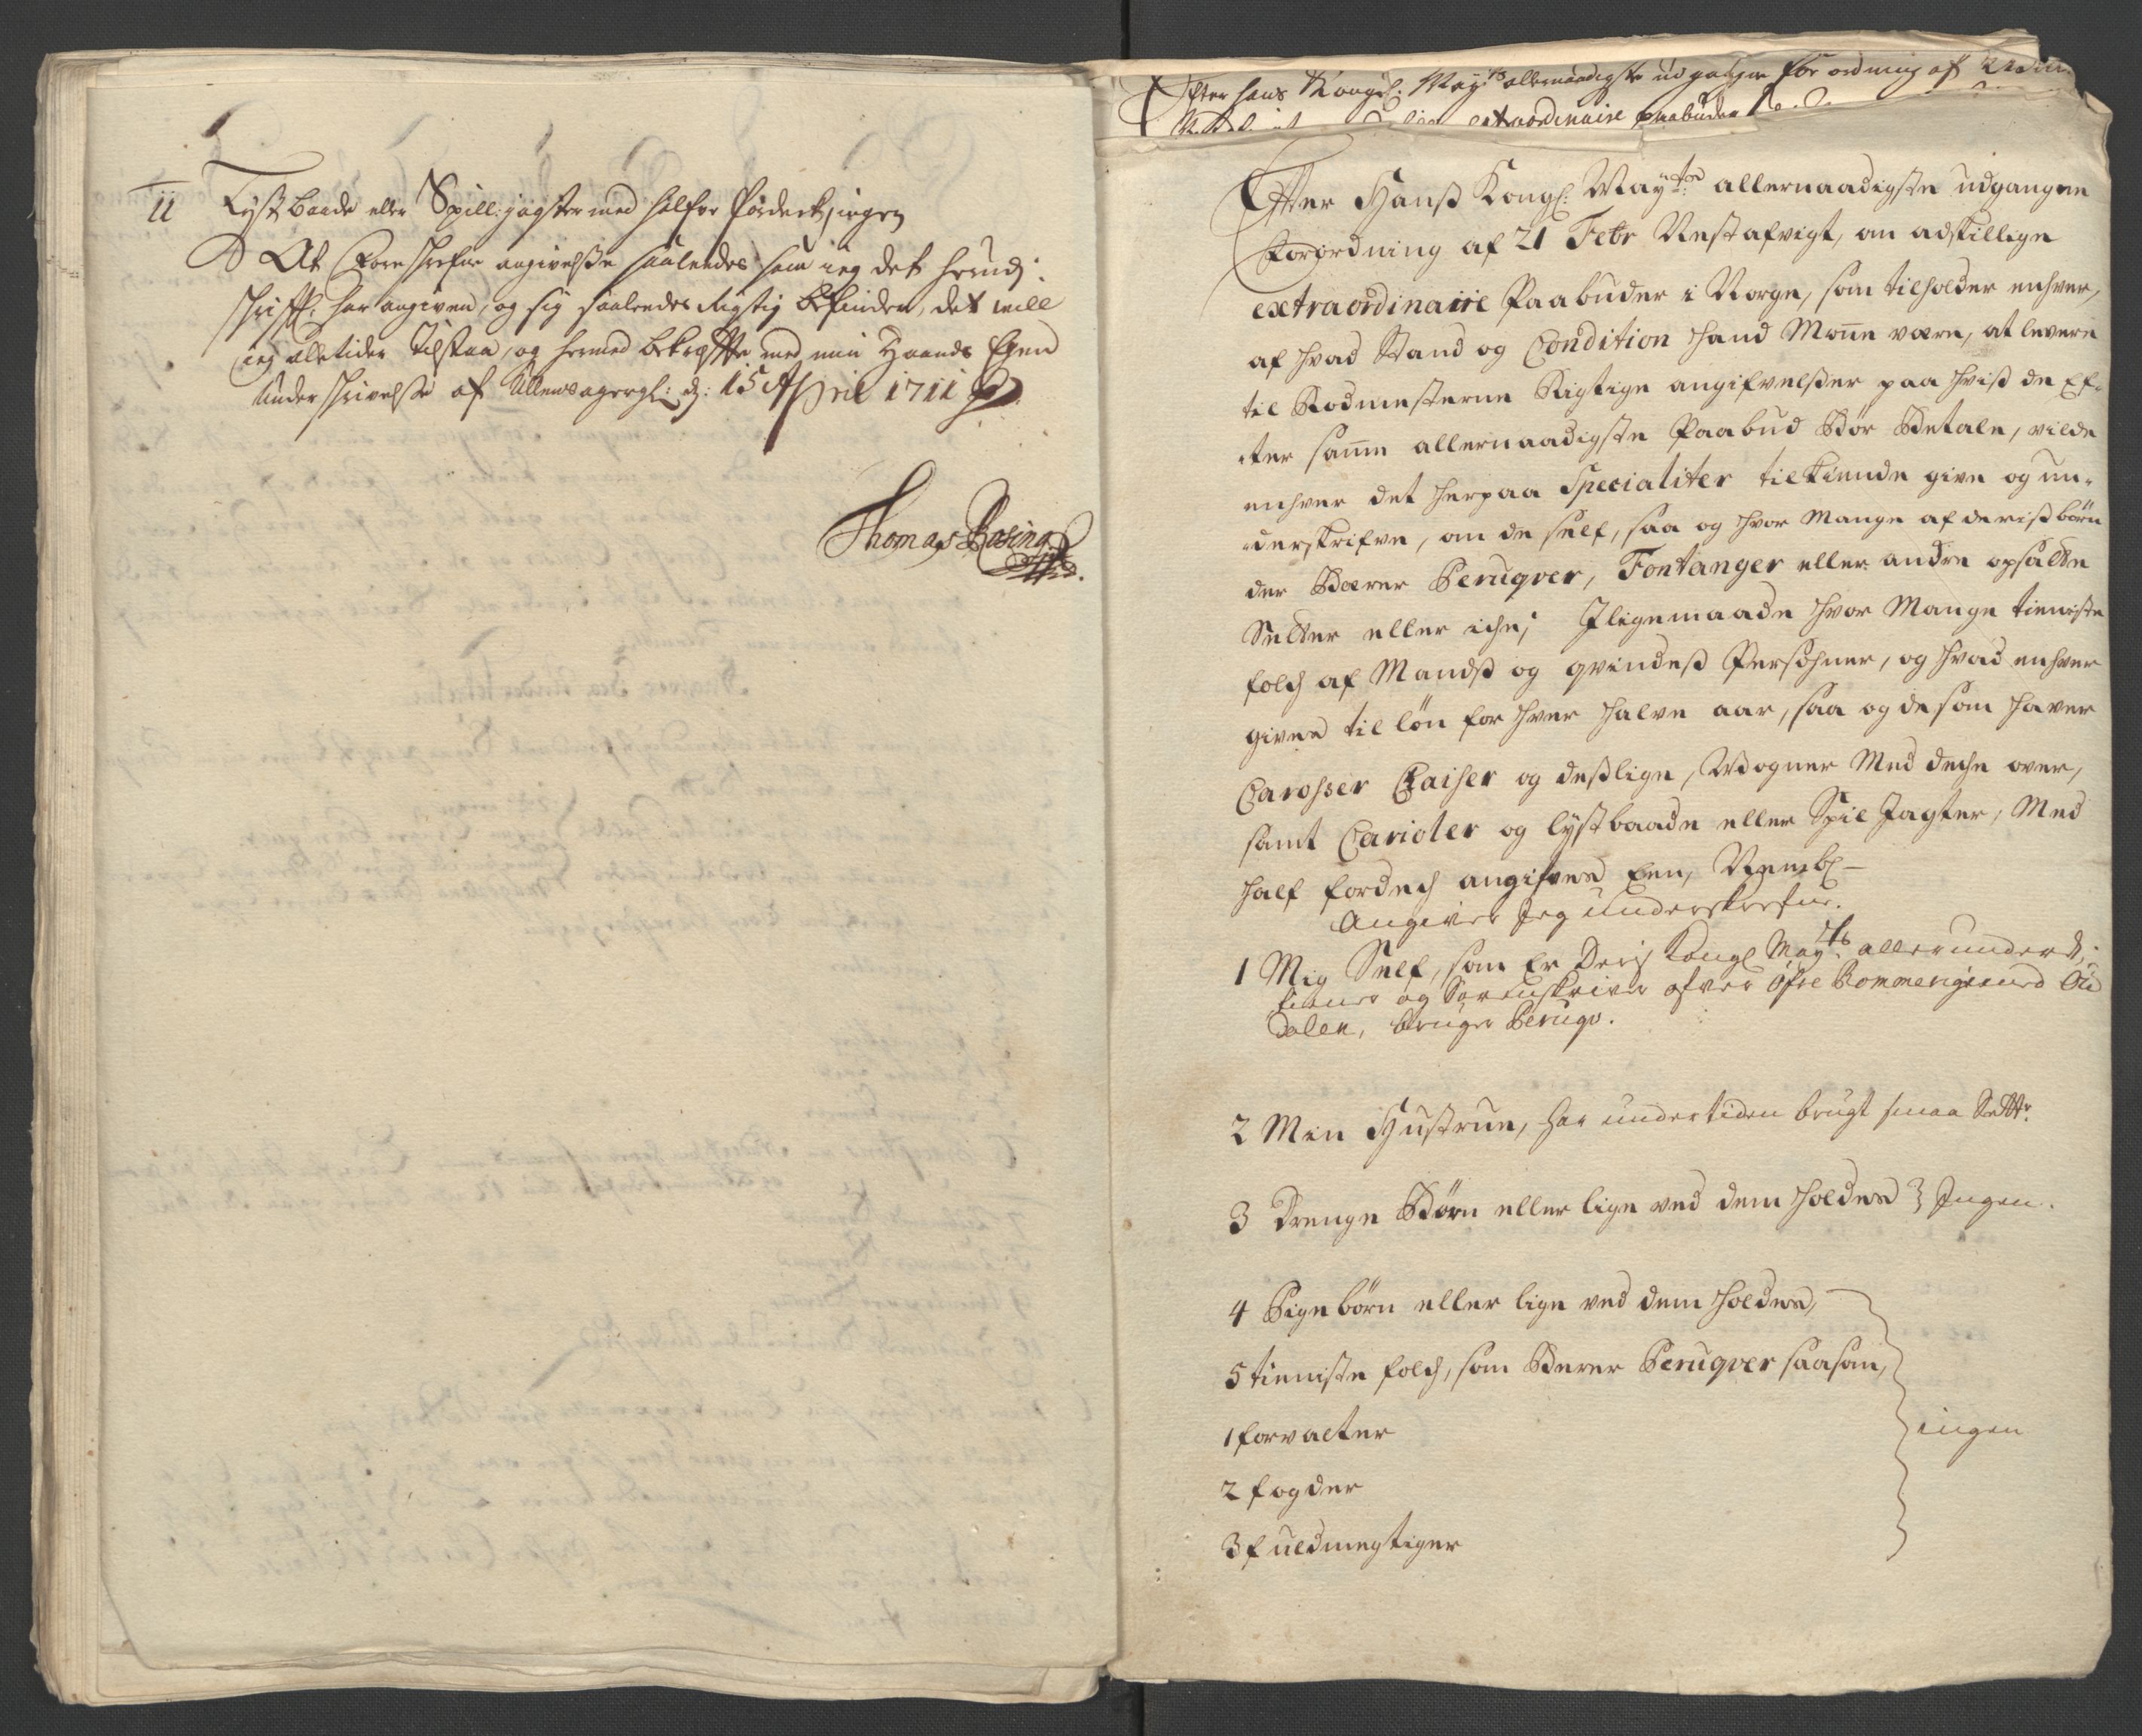 11 Lystbaade eller Spill: jagter med halfve fordek, ingen
At foreskrefne angivelse saaledes som ieg det herudj
schrifftl. har angiven, og sig saaledes Rigtig befinder, det will
ieg alletider tilstaa, og hermed bekræffte med min Haands Egen
Underskrivelse af Ullensagergl: d: 15 April 1711
Thomas Rosing
Efter Hans Kongel: Mayts allernaadigste udgangne forordning af
extraordinaire paabuden
Efter Hanß Kongl: Mayttes allernaadigste udgangne
Forordning af 21 Febr Nestafvigt, om adskillige
extraordinaire Paabuder i Norge, som tilholder enhver,
af hvad Stand og Condition hand Monne være, at levere
til Rodmesterne Rigtige angifvelßer paa hviß de Ef-
ter samme allernaadigste Paabud Bør Betale, vilde
enhver det herpaa Specialiter tilkiende give og un-
derskrifve, om de self, saa og hvor Mange af deriß børn
der Bærer Peruqver, Fontanger eller andre opsatte
Setter eller iche; Jligemaade hvor Mange tieniste
folch af Mandß og qvindeß Persohner, og hvad enhver
gives til løn for hver halve aar, saa og de som haver
Carosser Chaiser og deßlige, Wogner Med deche over,
samt Carioler og lystbaade eller Spil Jagter, Med
half fordech angifves Een, Nembl-
Angiver Jeg underskrefne.
1 Mig Self, som Er Deris Kongl Mayts allerunderd:
tiener og Sorenskriver ofver Øfre Rommerige med Ou
dalen, bruger Peruqv.
2 Min Hustrue, har undertiden brugt smaa Setter.
3 Drenge Børn eller lige ved dem holdes } Ingen.
4 Pigebørn eller lige ved dem holdes,
5 tieniste folch, som Berer Peruqver saasom,
1 forvalter
ingen
2 fogder
3 fuldmegtiger